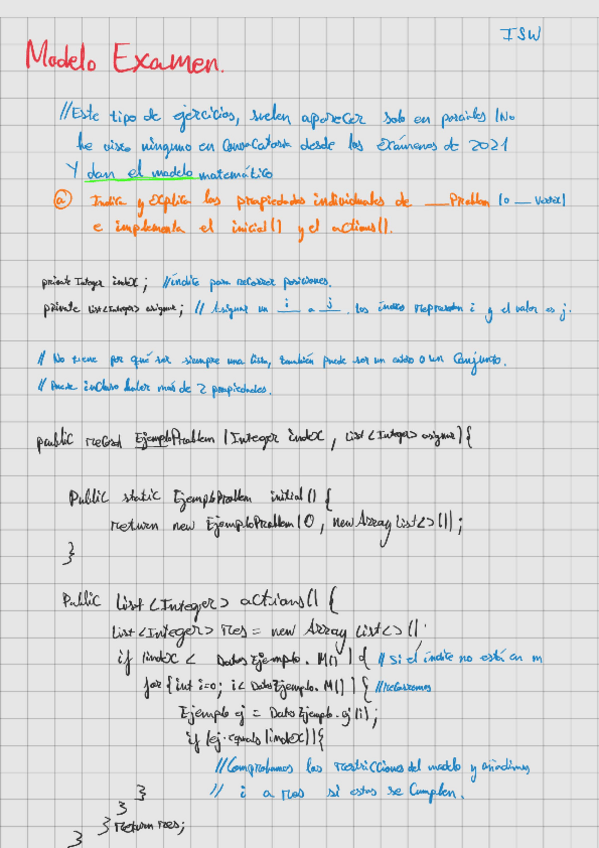 ISW
Modelo Examen.
//Este tipo de ejercicios, suelen aparecer solo en parciales (No
he visto ninguno en Convocatoria desde los exámenes de 2021
Y dan el modelo matemático
a) Indica y explica las propiedades individuales de ___Problem (o __ Vertex)
e implementa el initial() y el actions().
private Integer index; //índice para recorrer posiciones.
private List<Integer> asignar; // Asignar un i a j. los índices representan i y el valor es j.
// No tiene por qué ser siempre una lista, también puede ser un entero o un Conjunto.
// Puede incluso haber más de 2 propiedades.
public record EjemploProblem (Integer index, List<Integer> asignar){
Public static EjemploProblem initial() {
return new EjemploProblem(0, new ArrayList<>());
}
Public List<Integer> actions() {
List<Integer> res = new ArrayList<>();
if (index < DatosEjemplo.M()) { // Si el índice no está en m
for (int i=0; i<DatosEjemplo.M()) { //recorremos
Ejemplo ej = DatosEjemplo.ej(i);
if (ej.equals(index)){
//Comprobamos las restricciones del modelo y añadimos
} // i a res si estas se cumplen.
}
} return res;
}